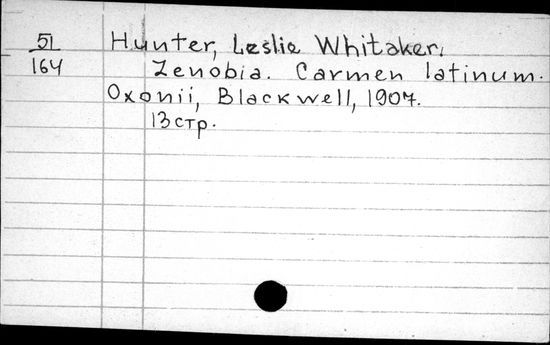 51
164
Hunter, Leslie Whitaker,
Zenobia. Carmen latinum.
Oxonii, Blackwell, 1907.
13 стр.